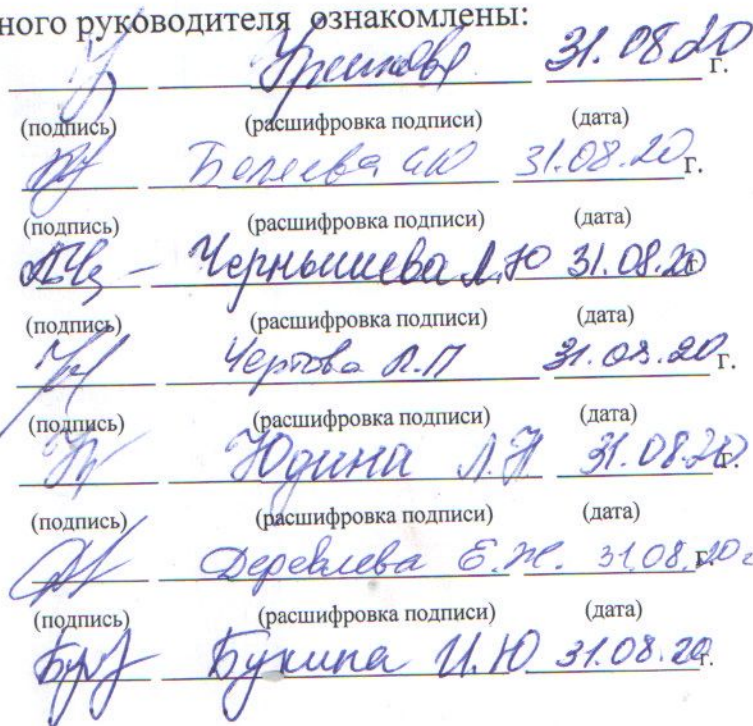 ного руководителя ознакомлены:
31.08.20 г.
(подпись) (расшифровка подписи) (дата)
31.08.20 г.
(подпись) (расшифровка подписи) (дата)
Чернышева Л.Ю 31.08.20
(подпись) (расшифровка подписи) (дата)
Чертова Л.П 31.08.20 г.
(подпись) (расшифровка подписи) (дата)
Юдина Л.Н 31.08.20 г.
(подпись) (расшифровка подписи) (дата)
Е.Ж. 31.08.20 г
(подпись) (расшифровка подписи) (дата)
Букина И.Ю 31.08.20 г.